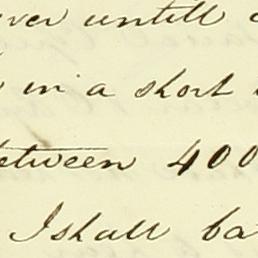 ever untill
in a short
between 400
I shall ba